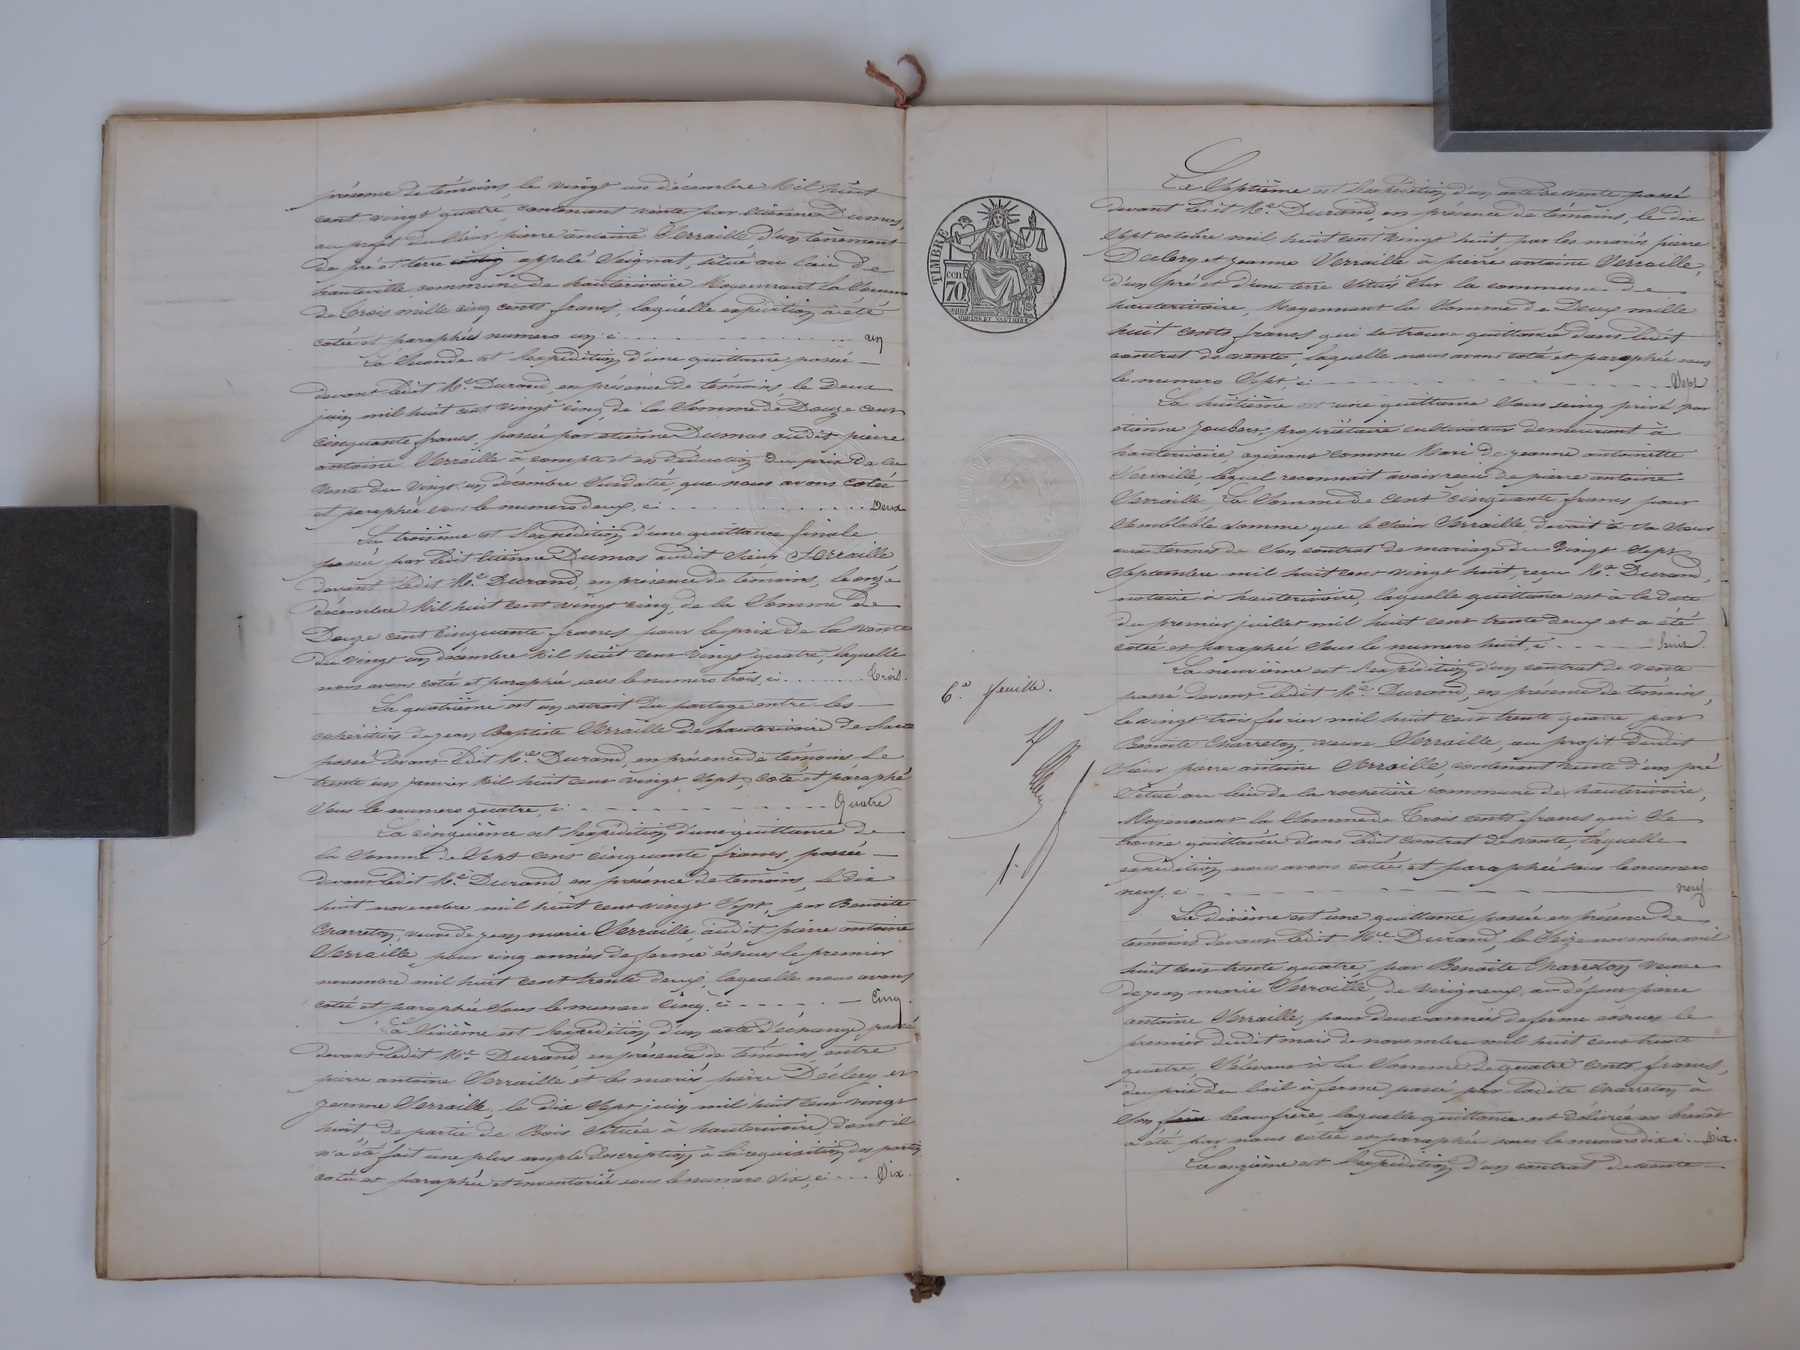 présence de témoins, le vingt un décembre Mil huit
cent vingt quatre, contenant vente par Etienne Dumas,
au projet du Sieur pierre antoine Verraille d'un tènement
de pré et terre appelé Seignat, situé au lieu de
hauteville commune de hauterivoire Moyennant la Somme
de trois mille cinq cents francs, laquelle expédition a été
cotée et paraphée numero un, ci un
La Seconde est l'expédition d'une quittance passée
devant ledit Me. Durand, en présence de témoins le Deux
juin mil huit cent vingt cinq, de la Somme de Douze cent
cinquante francs, passée par etienne Dumas audit pierre
antoine Verraille à compte et en déduction du prix de la
vente du vingt un décembre susdatée, que nous avons cotée
et paraphée sous le numero deux, ci Deux
La troisième est l'expédition d'une quittance finale
passée par ledit Etienne Dumas audit Sieur Verraille
devant ledit Me. Durand, en présence de témoins, le onze
décembre Mil huit cent vingt cinq, de la Somme de
Douze cent cinquante francs pour le prix de la vente
du vingt un décembre Mil huit cent vingt quatre, laquelle
nous avons cotée et paraphée sous le numero trois, ci Trois.
La quatrième est un extrait du partage entre les
cohéritiers de jean Baptiste Verraille de hauterivoire de
passé devant ledit Me. Durand, en présence de témoins, le
trente un janvier Mil huit cent vingt sept, coté et paraphé
Sous le numero quatre, ci Quatre
La cinquième est l'expédition d'une quittance de
la Somme de Sept cent cinquante francs, passée
devant ledit Me. Durand en présence de témoins, le dix
huit novembre mil huit cent vingt Sept, par Benoite
Charreton, veuve de jean marie Verraille, audit pierre antoine
Verraille, pour cinq années de ferme échues le premier
novembre mil huit cent trente deux, laquelle nous avons
cotée et paraphée Sous le numero Cinq. ci Cinq.
La Sixième est l'expédition d'un acte d'échange, passé
devant ledit Me. Durand, en présence de témoins, entre
pierre antoine Verraille et les mariés pierre Déclery et
jeanne Verraille, le dix Sept juin mil huit cent vingt
huit de partie de Bois Située à hauterivoire, dont il
n'a été fait une plus ample description, à la réquisition des parties
coté et paraphé et inventorié sous le numero six, ci Six.
TIMBRE
cen
70
6e. feuille.
La Septième est l'expédition d'un acte de vente passé
devant ledit Me. Durand, en présence de témoins, le dix
Sept octobre mil huit cent vingt huit, par les mariés pierre
Déclery et jeanne Verraille à pierre antoine Verraille,
d'un pré et d'une terre situés sur la commune de
hauterivoire, Moyennant la Somme de Deux mille
huit cents francs, qui se trouve quittancée dans ledit
contrat de vente, laquelle nous avons coté et paraphée sous
le numero Sept, ci Sept
La huitième est une quittance Sous seing privé par
étienne Joubert, propriétaire cultivateur demeurant à
hauterivoire agissant comme Mari de jeanne antoinette
Verraille, lequel reconnait avoir reçu de pierre antoine
Verraille, la Somme de cent cinquante francs pour
Semblable somme que le Sieur Verraille, devait à sa Sœur
aux termes de Son contrat de mariage du Vingt Sept
Septembre mil huit cent vingt huit, reçu Me. Durand,
notaire à hauterivoire, laquelle quittance est à la date
du premier juillet mil huit cent trente deux et a été
cotée et paraphée Sous le numero huit, ci huit.
La neuvième est l'expédition d'un contrat de vente
passé devant ledit Me. Durand, en présence de témoins,
le vingt trois fevrier mil huit cent trente quatre par
Benoite Charreton, veuve Verraille, au projit dudit
Sieur pierre antoine Verraille, contenant vente d'un pré
Situé au lieu de la rochetière commune de hauterivoire,
Moyennant la Somme de Trois cents francs qui Se
trouve quittancée dans ledit contrat de vente, laquelle
expédition nous avons cotée et paraphée sous le numero
neuf. ci neuf.
La dixième est une quittance passée en présence de
témoins devant ledit Me. Durand, le Seize novembre mil
huit cent trente quatre, par Benoite Charreton veuve
de jean marie Verraille, de virigneux, au défunt pierre
antoine Verraille, pour deux années de ferme echues le
premier dudit mois de novembre mil huit cent trente
quatre S'élevant à la Somme de quatre cents francs,
du prix du bail à ferme passé par ladite Charreton à
Son beaufrère, laquelle quittance est délivrée en brevêt
a été par nous cotée et paraphée sous le numero dix ci Dix.
La onzième est l'expédition d'un contrat de vente